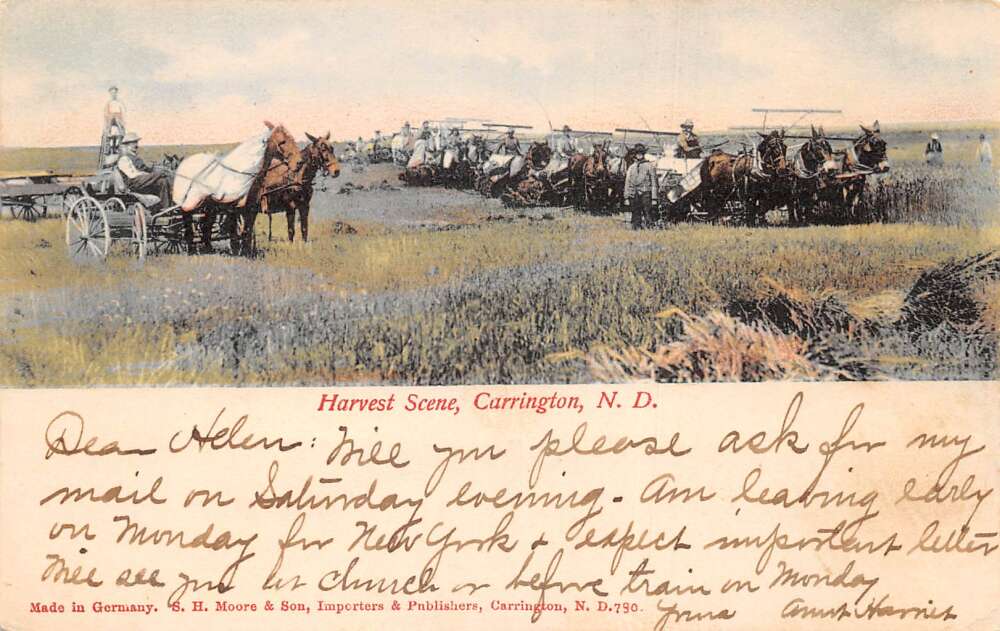 Harvest Scene, Carrington, N. D.
Dear Helen: Will you please ask for my
mail on Saturday evening - Am leaving early
on Monday for New York & expect important letter
Will see you at church or before train on Monday
Made in Germany. S. H. Moore & Son, Importers & Publishers, Carrington, N. D. 780.
Yours Aunt Harriet